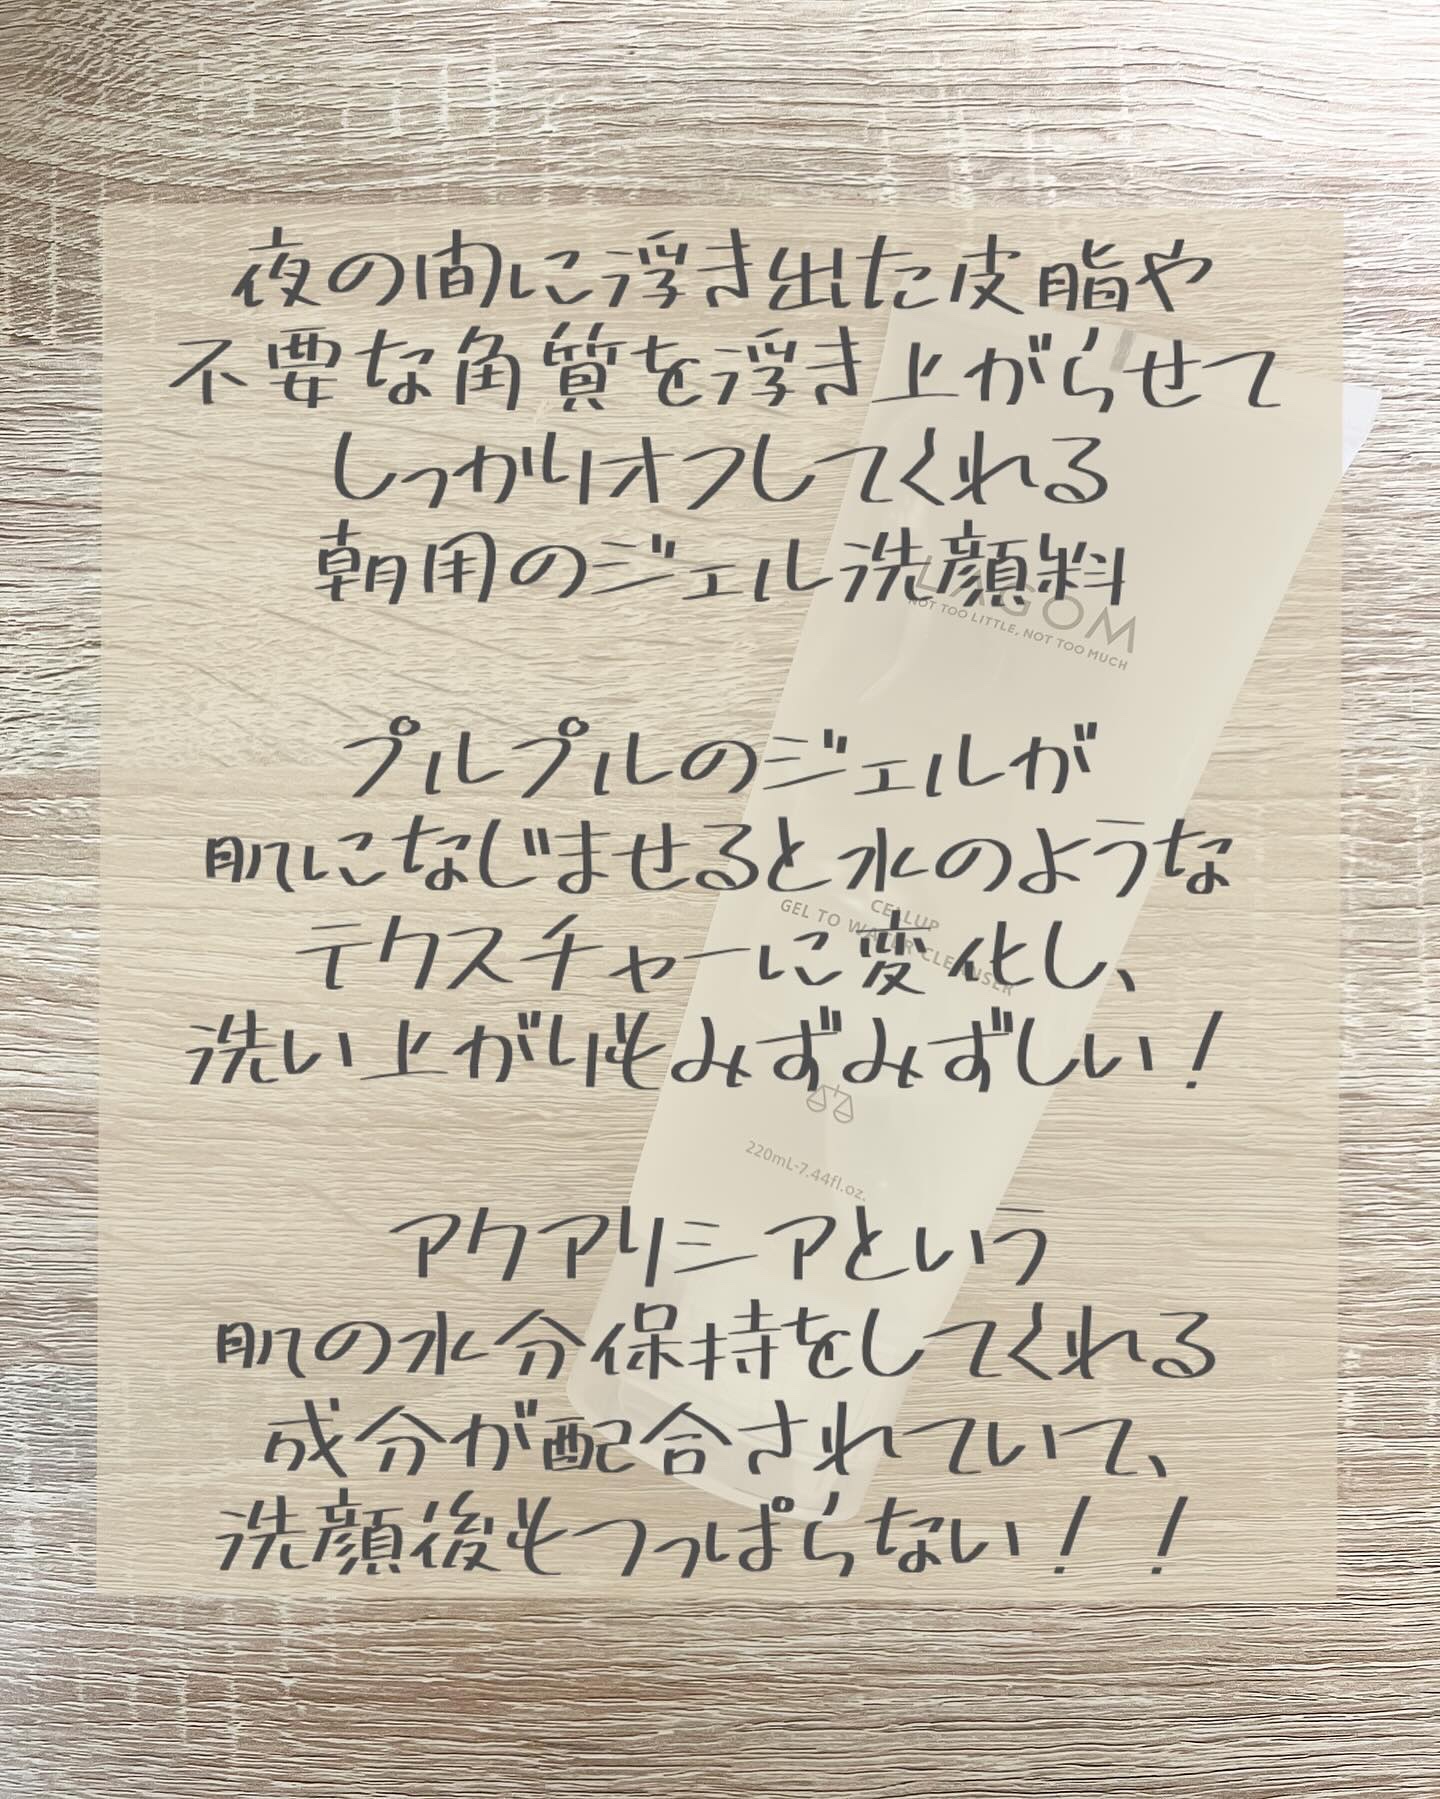 夜の間に浮き出た皮脂や
不要な角質を浮き上がらせて
しっかりオフしてくれる
朝用のジェル洗顔料
LAGOM
NOT TOO LITTLE, NOT TOO MUCH
プルプルのジェルが
肌になじませると水のような
CELLUP
GEL TO WATER CLEANSER
テクスチャーに変化し、
洗い上がりもみずみずしい！
220mL-7.44fl.oz.
アクアリシアという
肌の水分保持をしてくれる
成分が配合されていて、
洗顔後もつっぱらない！！